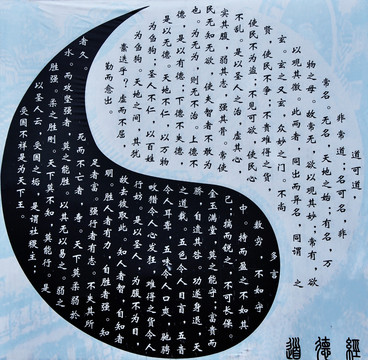 道可道，
非常道；名可名，非
常名。无名，天地之始；有名，万
物之母。故常无，欲以观其妙；常有，欲
以观其徼。此两者，同出而异名，同谓之
玄。玄之又玄，众妙之门。不尚
贤，使民不争；不贵难得之货，
使民不为盗；不见可欲，使民心
不乱。是以圣人之治，虚其心，
实其腹，弱其志，强其骨。常使
民无知无欲，使夫智者不敢为
也。为无为，则无不治。上德不
德，是以有德；下德不失德，
是以无德。天地不仁，以万物
为刍狗；圣人不仁，以百姓
为刍狗。天地之间，其犹
橐迭乎？虚而不屈，
动而愈出
多言
数穷，不如守
中。持而盈之不如其
已；揣而锐之，不可长保。
金玉满堂，莫之能守；富贵而
骄，自遗其咎。功遂身退，天
之道哉。五色令人目盲，五音
令人耳聋，五味令人口爽，驰骋
畋猎令人心发狂，难得之货令人
行妨。是以圣人，为腹不为目，
故去彼取此。知人者智，自知者
明。胜人者有力，自胜者强。知
足者富。强行者有志，不失其所
者久，死而不亡者寿。天下莫柔弱於
水，而攻坚强者，莫之能胜，以其无以易之。弱之
胜强，柔之胜刚，天下莫不知，莫能行。是
以圣人云，受国之垢，是谓社稷主；
受国不祥是为天下王。
道德經